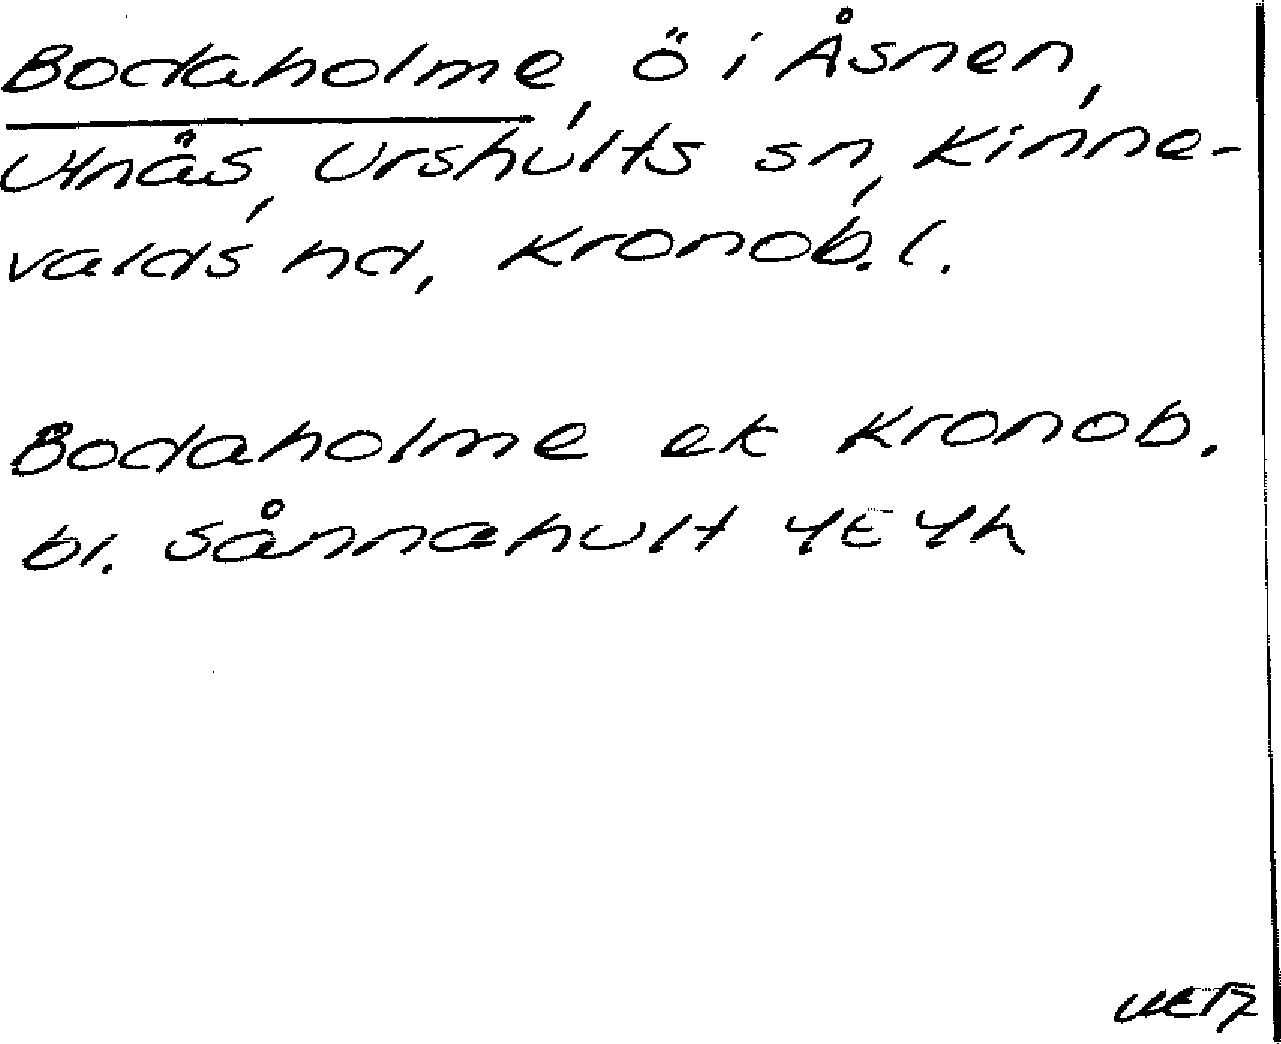 Bodaholme, ö i Åsnen,
Utnäs, Urshults sn, Kinne-
valds hd, Kronob. l.
Bodaholme ek Kronob.
bl. Sånnahult 4E4h